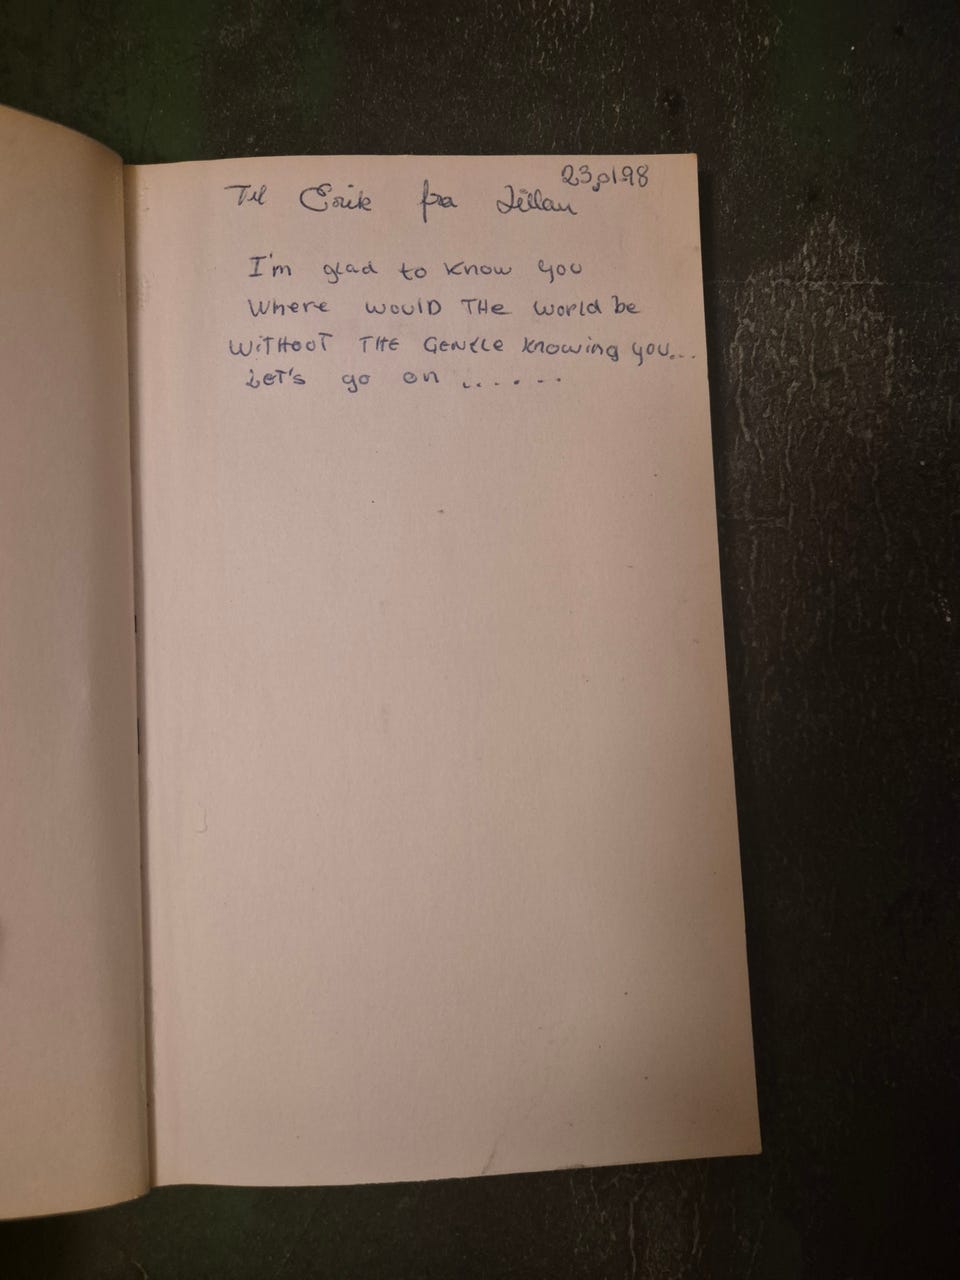 23,01.98
Til Erik fra Lillan
I'm glad to know you
Where would THe world be
WiTHooT THE GenTle knowing you...
LeT's go on ......